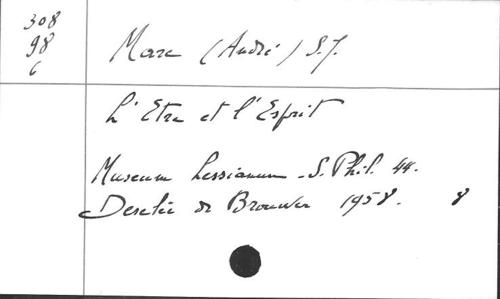 308
98
6
Marc (André) S.J.
L'Etre et l'Esprit
Museum Lessianum - S. Phil. 44.
Desclée de Brouwer 1958. 8